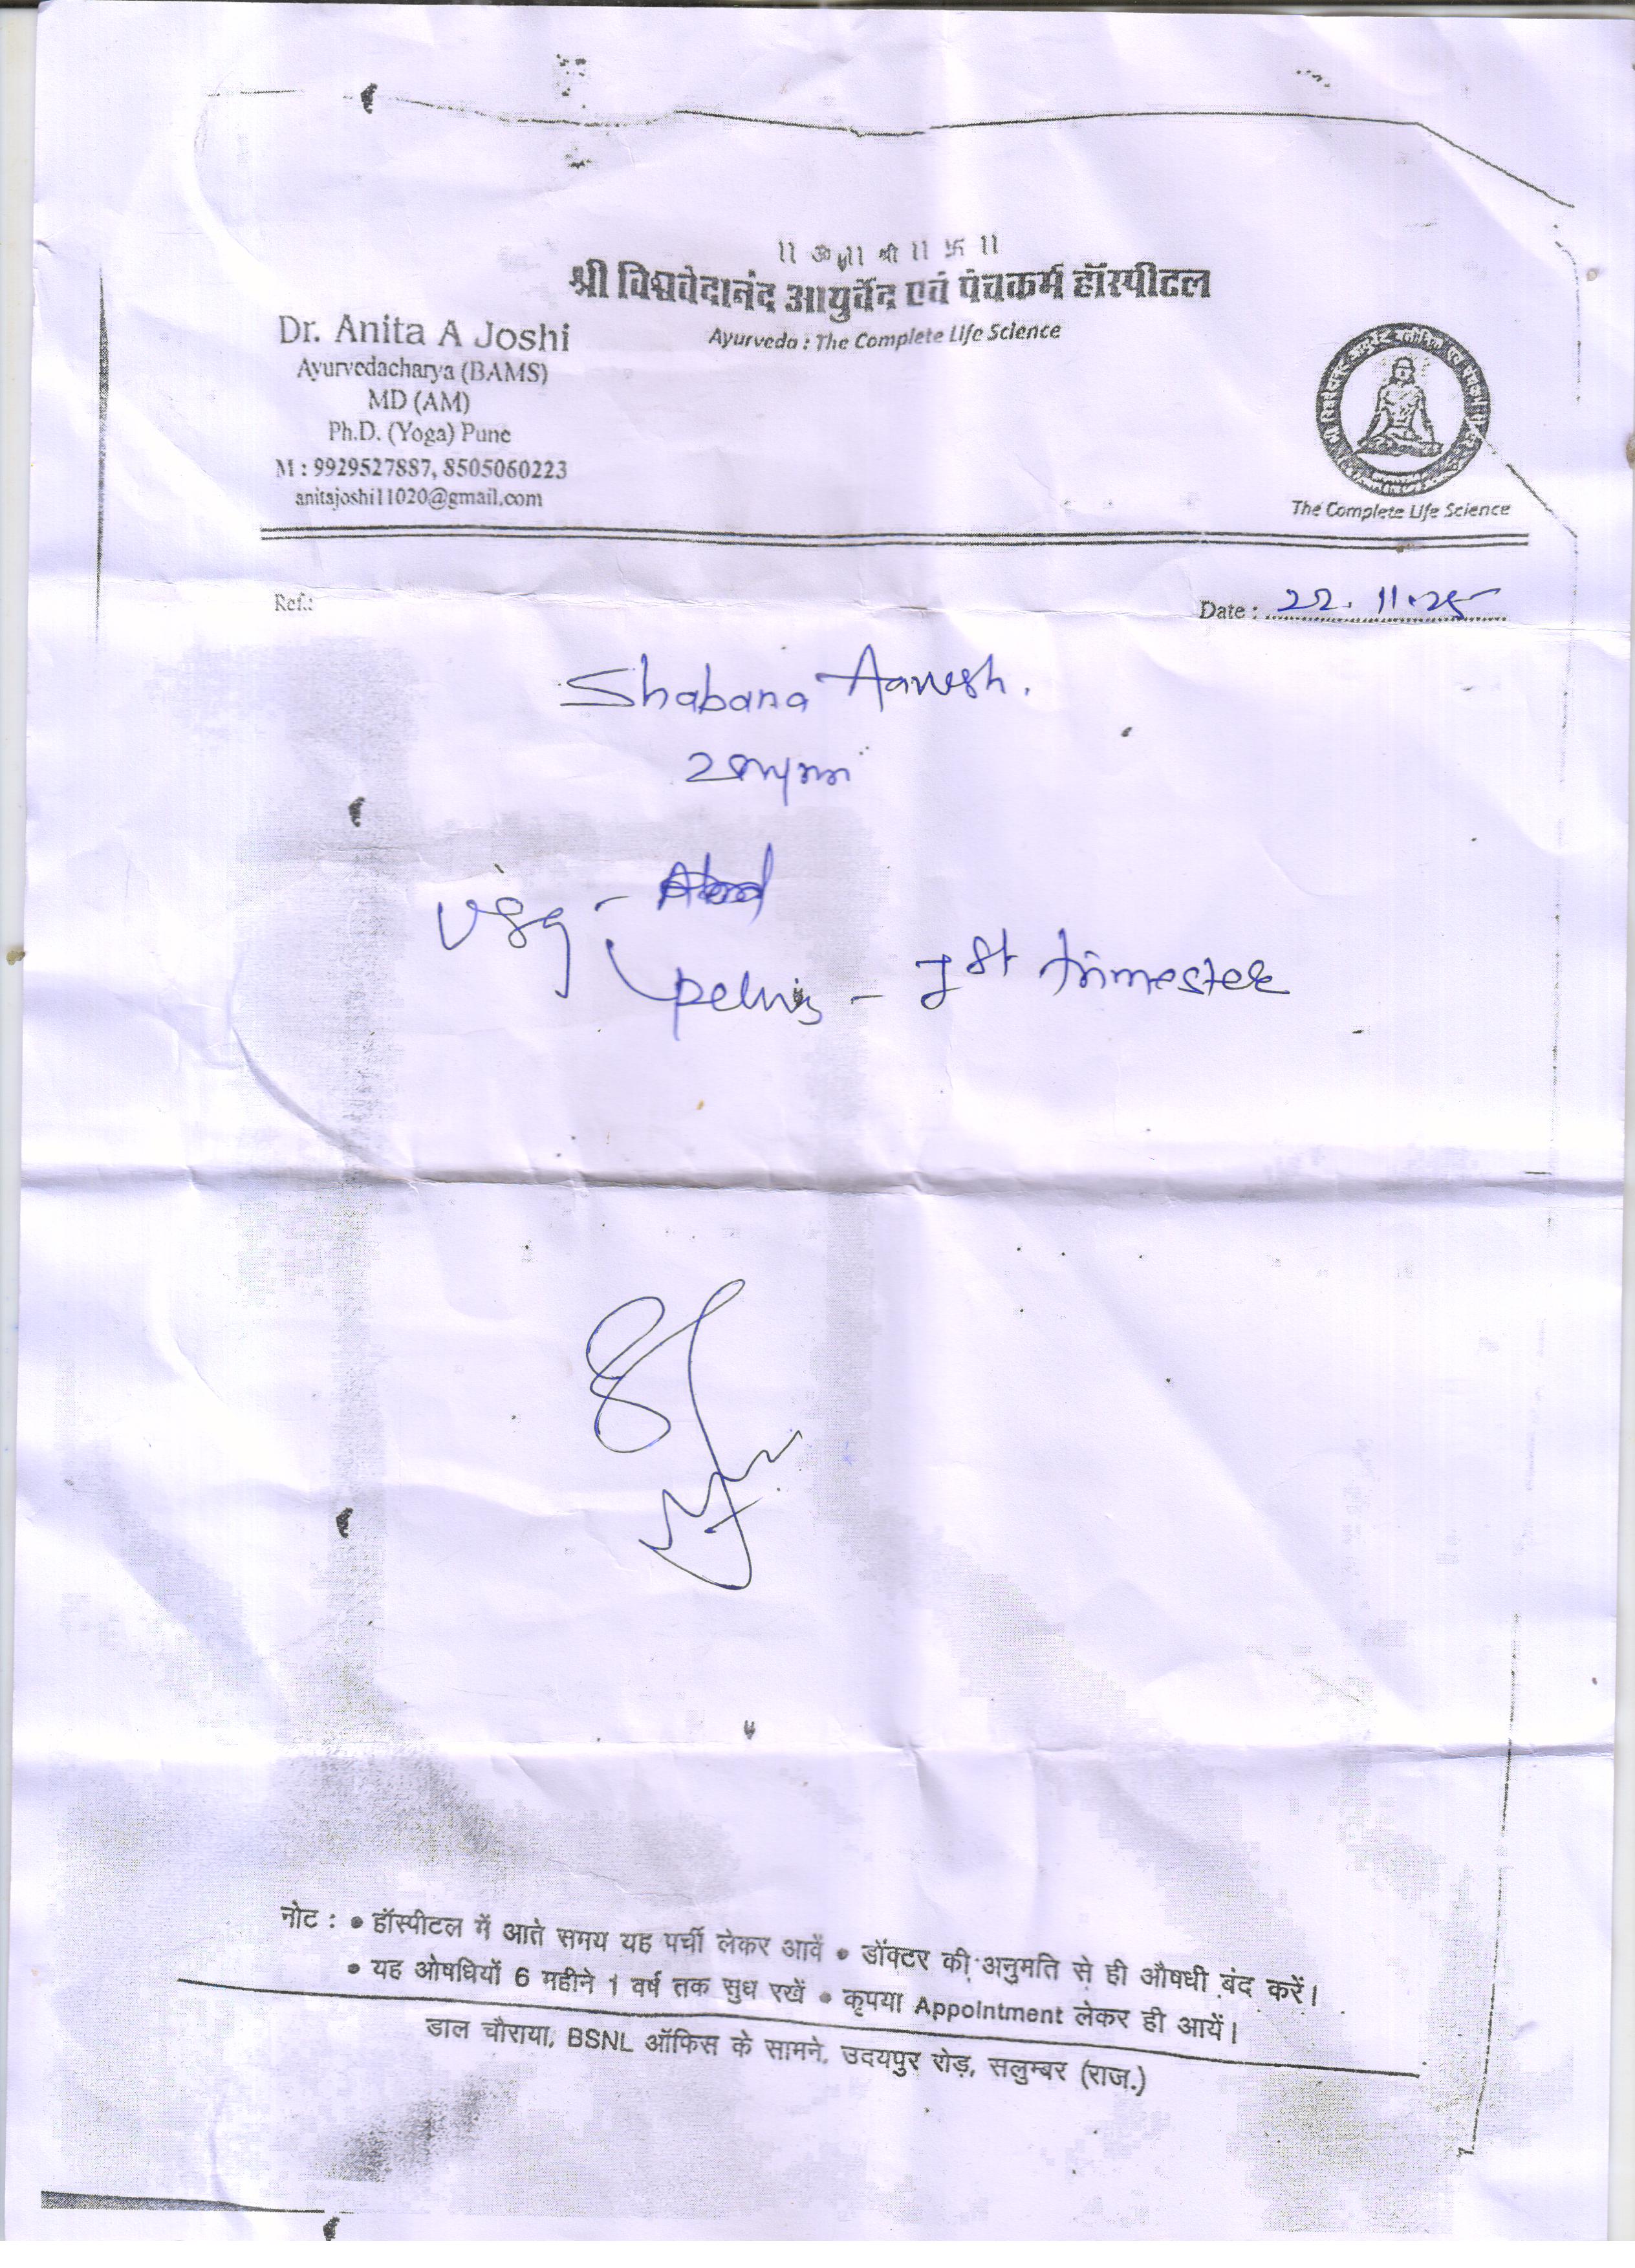 ॥ ॐ ॥ श्री ॥ 卐 ॥
श्री विश्ववेदानंद आयुर्वेद एवं पंचकर्म हॉस्पीटल
Ayurveda : The Complete Life Science
Dr. Anita A Joshi
Ayurvedacharya (BAMS)
MD (AM)
Ph.D. (Yoga) Pune
M : 9929527887, 8505060223
anitajoshi11020@gmail.com
The Complete Life Science
Ref.:
Date : 22.11.25
Shabana
USG -
Pelvis - Ist trimester
नोट : • हॉस्पीटल में आते समय यह पर्ची लेकर आवें • डॉक्टर की अनुमति से ही औषधी बंद करें।
• यह ओषधियाँ 6 महीने 1 वर्ष तक सुध रखें • कृपया Appointment लेकर ही आयें।
डाल चौराया, BSNL ऑफिस के सामने, उदयपुर रोड़, सलुम्बर (राज.)